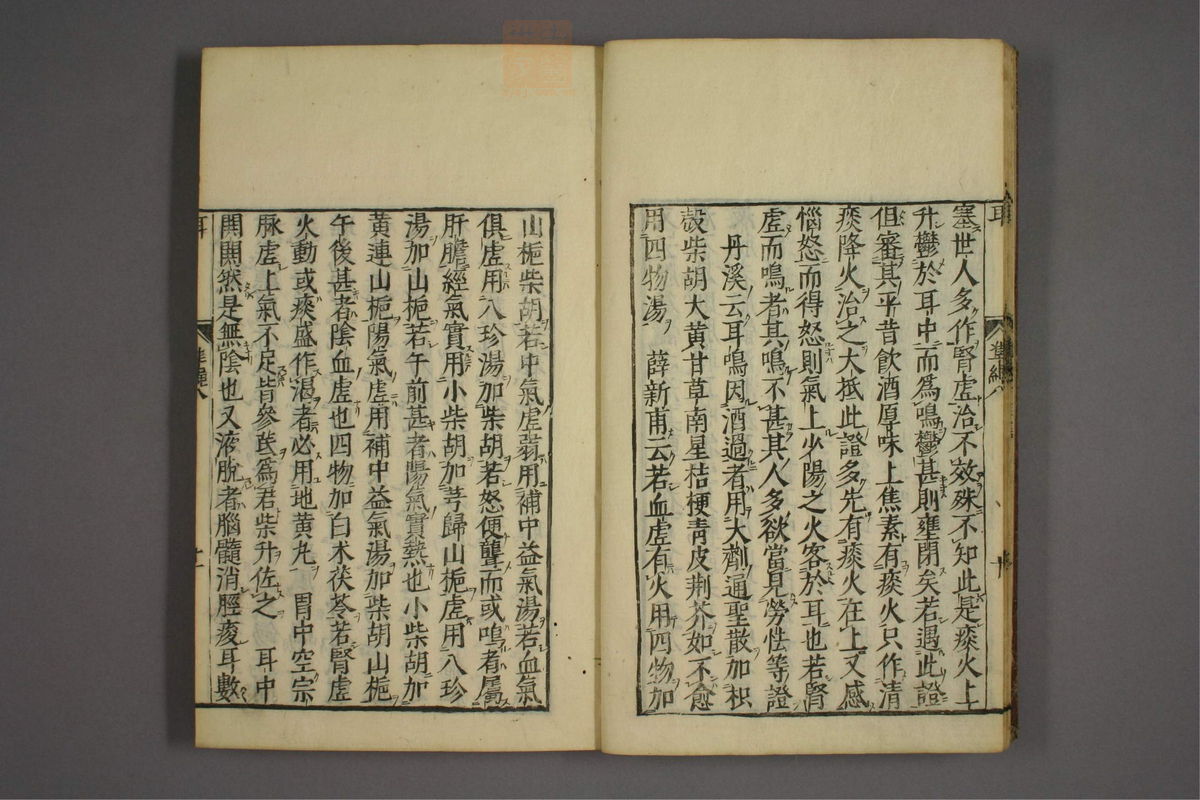 塞世人多作腎虛治不效殊不知此是痰火上
升鬱於耳中而爲鳴鬱甚則壅閉矣若遇此證
但審其平昔飲酒厚味上焦素有痰火只作清
痰降火治之大抵此證多先有痰火在上又感
惱怒而得怒則氣上少陽之火客於耳也若腎
虛而鳴者其鳴不甚其人多欲當見勞怯等證
丹溪云耳鳴因酒過者用大劑通聖散加枳
殼柴胡大黄甘草南星桔梗青皮荆芥如不愈
用四物湯 薛新甫云若血虛有火用四物加
山梔柴胡若中氣虛弱用補中益氣湯若血氣
俱虛用八珍湯加柴胡若怒便聾而或鳴者屬
肝膽經氣實用小柴胡加芎歸山梔虛用八珍
湯加山梔若午前甚者陽氣實熱也小柴胡加
黄連山梔陽氣虛用補中益氣湯加柴胡山梔
午後甚者陰血虛也四物加白术茯苓若腎虛
火動或痰盛作渴者必用地黄丸 胃中空宗
脉虛上氣不足皆參芪爲君柴升佐之 耳中
閧閧然是無陰也又液脫者腦髓消脛痠耳數
耳
準繩八